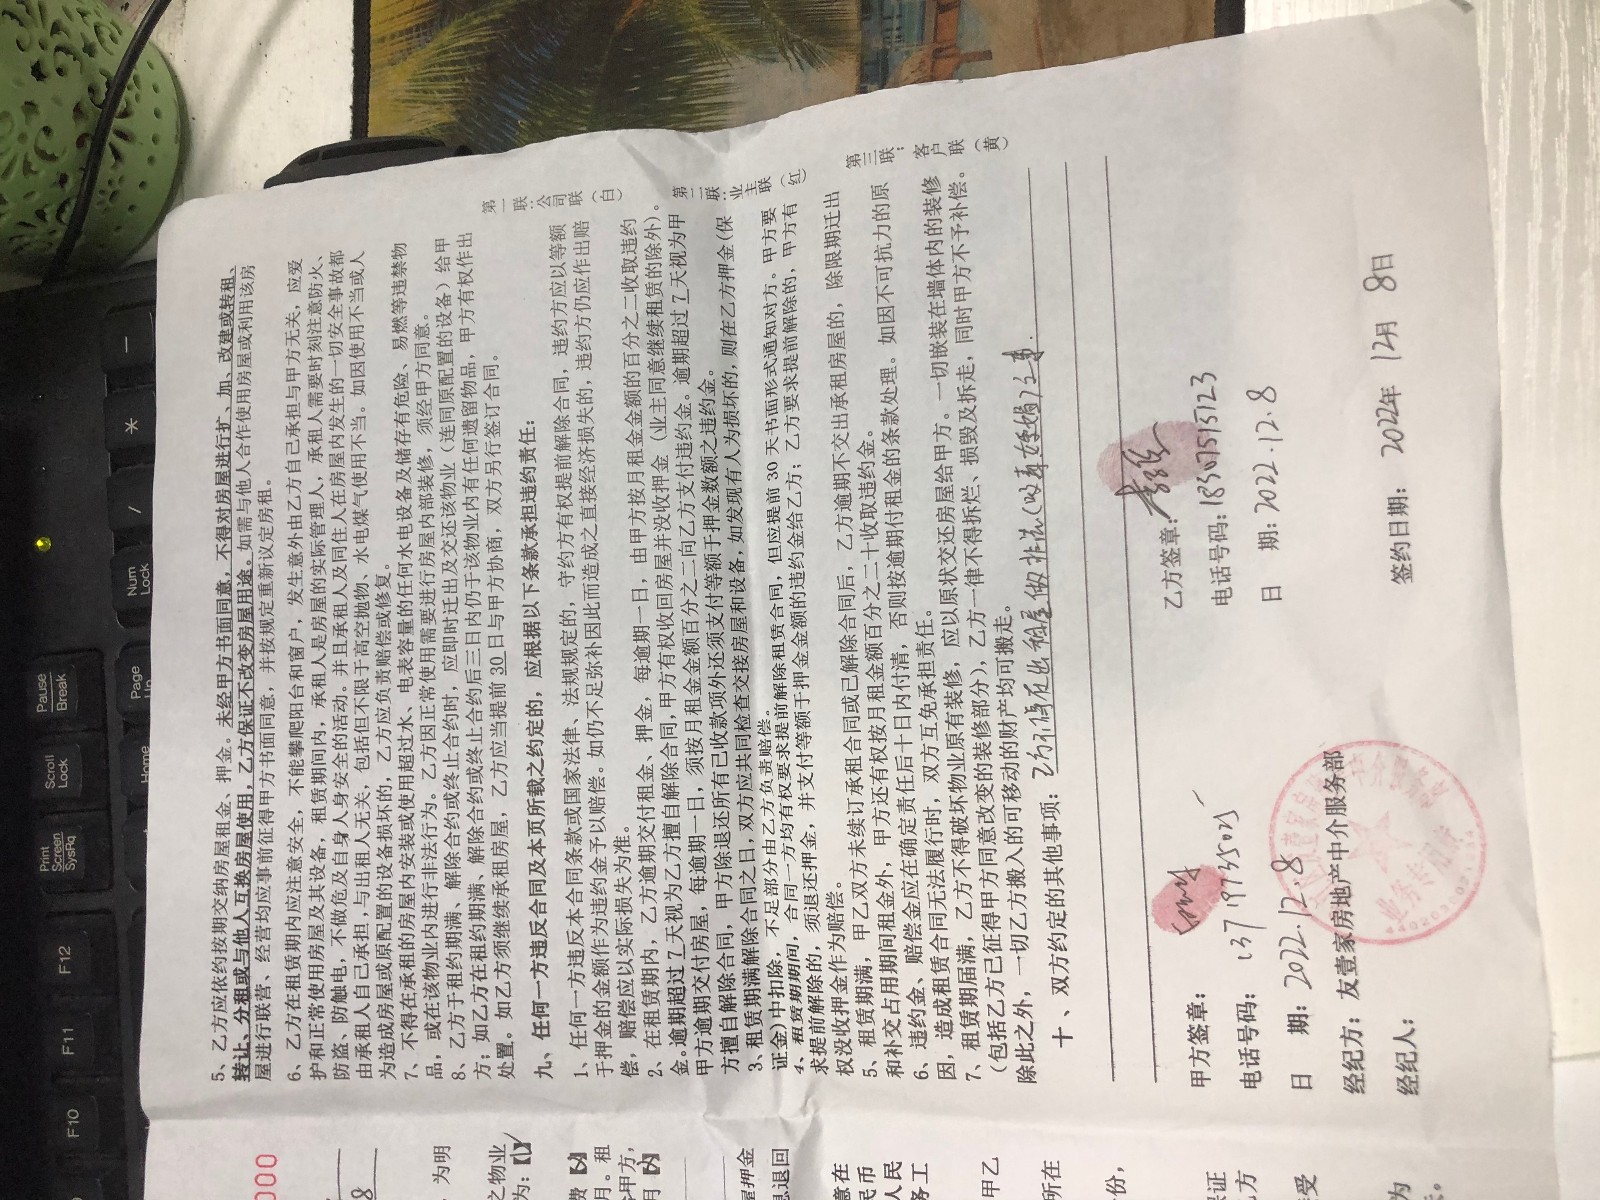 5、乙方应依约按期交纳房屋租金、押金。未经甲方书面同意，不得对房屋进行扩、加、改建或转租、
转让、分租或与他人互换房屋使用，乙方保证不改变房屋用途。如需与他人合作使用房屋或利用该房
屋进行联营、经营均应事前征得甲方书面同意，并按规定重新议定房租。
6、乙方在租赁期内应注意安全，不能攀爬阳台和窗户，发生意外由乙方自己承担与甲方无关，应爱
护和正常使用房屋及其设备，租赁期间内，承租人是房屋的实际管理人，承租人需要时刻注意防火、
防盗、防触电，不做危及自身人身安全的活动。并且承租人及同住人在房屋内发生的一切安全事故都
由承租人自己承担，与出租人无关，包括但不限于高空抛物、水电煤气使用不当。如因使用不当或人
为造成房屋或原配置的设备损坏的，乙方应负责赔偿或修复。
7、不得在承租的房屋内安装或使用超过水、电表容量的任何水电设备及储存有危险、易燃等违禁物
品，或在该物业内进行非法行为。乙方因正常使用需要进行房屋内部装修，须经甲方同意。
8、乙方于租约期满、解除合约或终止合约时，应即时迁出及交还该物业（连同原配置的设备）给甲
方；如乙方在租约期满、解除合约或终止合约后三日内仍于该物业内有任何遗留物品，甲方有权作出
处置。如乙方须继续承租房屋，乙方应当提前30日与甲方协商，双方另行签订合同。
九、任何一方违反合同及本页所载之约定的，应根据以下条款承担违约责任：
1、任何一方违反本合同条款或国家法律、法规规定的，守约方有权提前解除合同，违约方应以等额
于押金的金额作为违约金予以赔偿。如仍不足弥补因此而造成之直接经济损失的，违约方仍应作出赔
偿，赔偿应以实际损失为准。
2、在租赁期内，乙方逾期交付租金、押金，每逾期一日，由甲方按月租金金额的百分之二收取违约
金。逾期超过7天视为乙方擅自解除合同，甲方有权收回房屋并没收押金（业主同意继续租赁的除外）。
甲方逾期交付房屋，每逾期一日，须按月租金金额百分之二向乙方支付违约金。逾期超过7天视为甲
方擅自解除合同，甲方除退还所有已收款项外还须支付等额于押金数额之违约金。
3、租赁期满解除合同之日，双方应共同检查交接房屋和设备，如发现有人为损坏的，则在乙方押金（保
证金）中扣除，不足部分由乙方负责赔偿。
4、租赁期期间，合同一方均有权要求提前解除租赁合同，但应提前30天书面形式通知对方。甲方要
求提前解除的，须退还押金，并支付等额于押金金额的违约金给乙方；乙方要求提前解除的，甲方有
权没收押金作为赔偿。
5、租赁期满，甲乙双方未续订承租合同或已解除合同后，乙方逾期不交出承租房屋的，除限期迁出
和补交占用期间租金外，甲方还有权按月租金额百分之二十收取违约金。
6、违约金、赔偿金应在确定责任后十日内付清，否则按逾期付租金的条款处理。如因不可抗力的原
因，造成租赁合同无法履行时，双方互免承担责任。
7、租赁期届满，乙方不得破坏物业原有装修，应以原状交还房屋给甲方。一切嵌装在墙体内的装修
（包括乙方已征得甲方同意改变的装修部分），乙方一律不得拆烂、损毁及拆走，同时甲方不予补偿。
除此之外，一切乙方搬入的可移动的财产均可搬走。
十、双方约定的其他事项：
第一联：公司联（白）
第二联：业主联（红）
第三联：客户联（黄）
甲方签章：
电话号码：
日 期：2022.12.8
乙方签章：
电话号码：18307515123
日 期：2022.12.8
经纪方：友壹家房地产中介服务部
经纪人：
签约日期：2022年12月8日
000
8
为明
之物业
月。租
甲方，
屋押金
退回
意在
民币
人民
务工
甲乙
所在
份，
证
方
受
为
Print Screen SysRq
Scroll Lock
Pause Break
F10
F11
F12
Home
Page Up
Num Lock
/
*